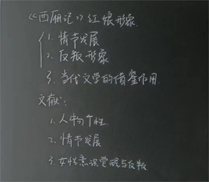 《西厢记》红娘形象
1. 情节发展
2. 反叛形象
3. 当代文学的借鉴作用
文献:
1. 人物个性
2. 情节发展
3. 女性意识觉醒与反叛